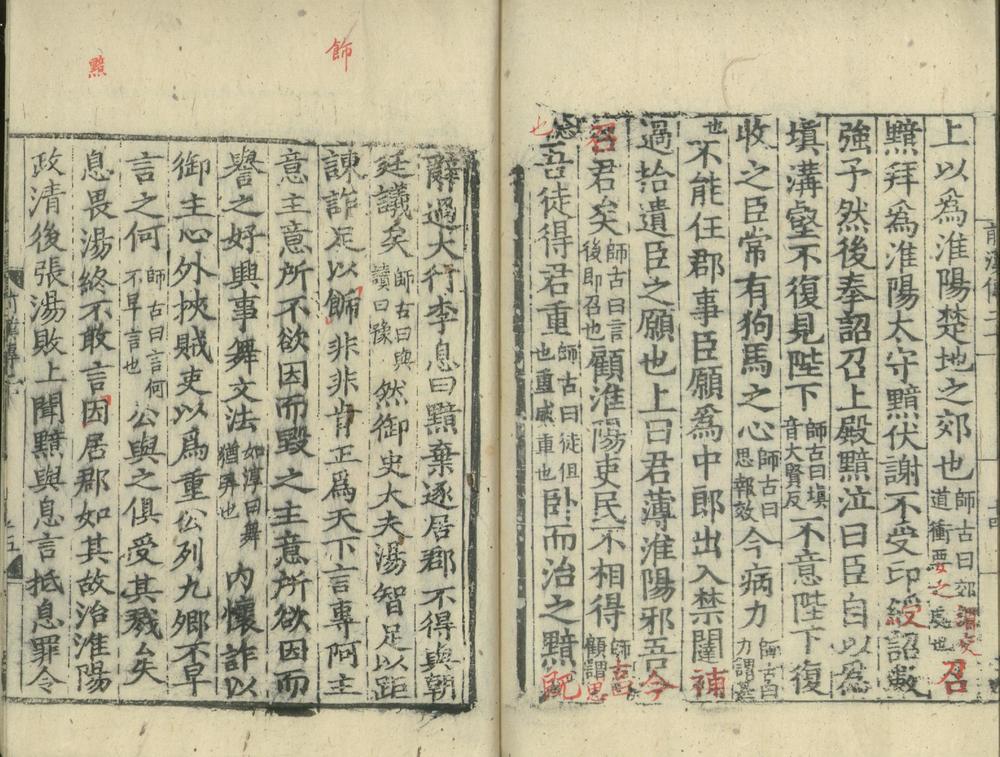 上以爲淮陽楚地之郊也師古曰郊謂交道衝要之處也召
黯拜爲淮陽太守黯伏謝不受印綬詔數
強予然後奉詔召上殿黯泣曰臣自以爲
填溝壑不復見陛下師古曰填音大賢反不意陛下復
收之臣常有狗馬之心師古曰思報效今病力師古曰力謂甚
也不能任郡事臣願爲中郎出入禁闥補
過拾遺臣之願也上曰君薄淮陽邪吾今
召君矣師古曰言後即召也顧淮陽吏民不相得師古曰顧謂思念
也吾徒得君重師古曰徒但也重威重也臥而治之黯既
辭過大行李息曰黯棄逐居郡不得與朝
廷議矣師古曰與讀曰豫然御史大夫湯智足以距
諫詐足以飾非非肯正爲天下言專阿主
意主意所不欲因而毀之主意所欲因而
譽之好興事舞文法如淳曰舞猶弄也內懷詐以
御主心外挾賊吏以爲重公列九卿不早
言之何師古曰言何不早言也公與之俱受其戮矣
息畏湯終不敢言因居郡如其故治淮陽
政清後張湯敗上聞黯與息言抵息罪令
飾
黯